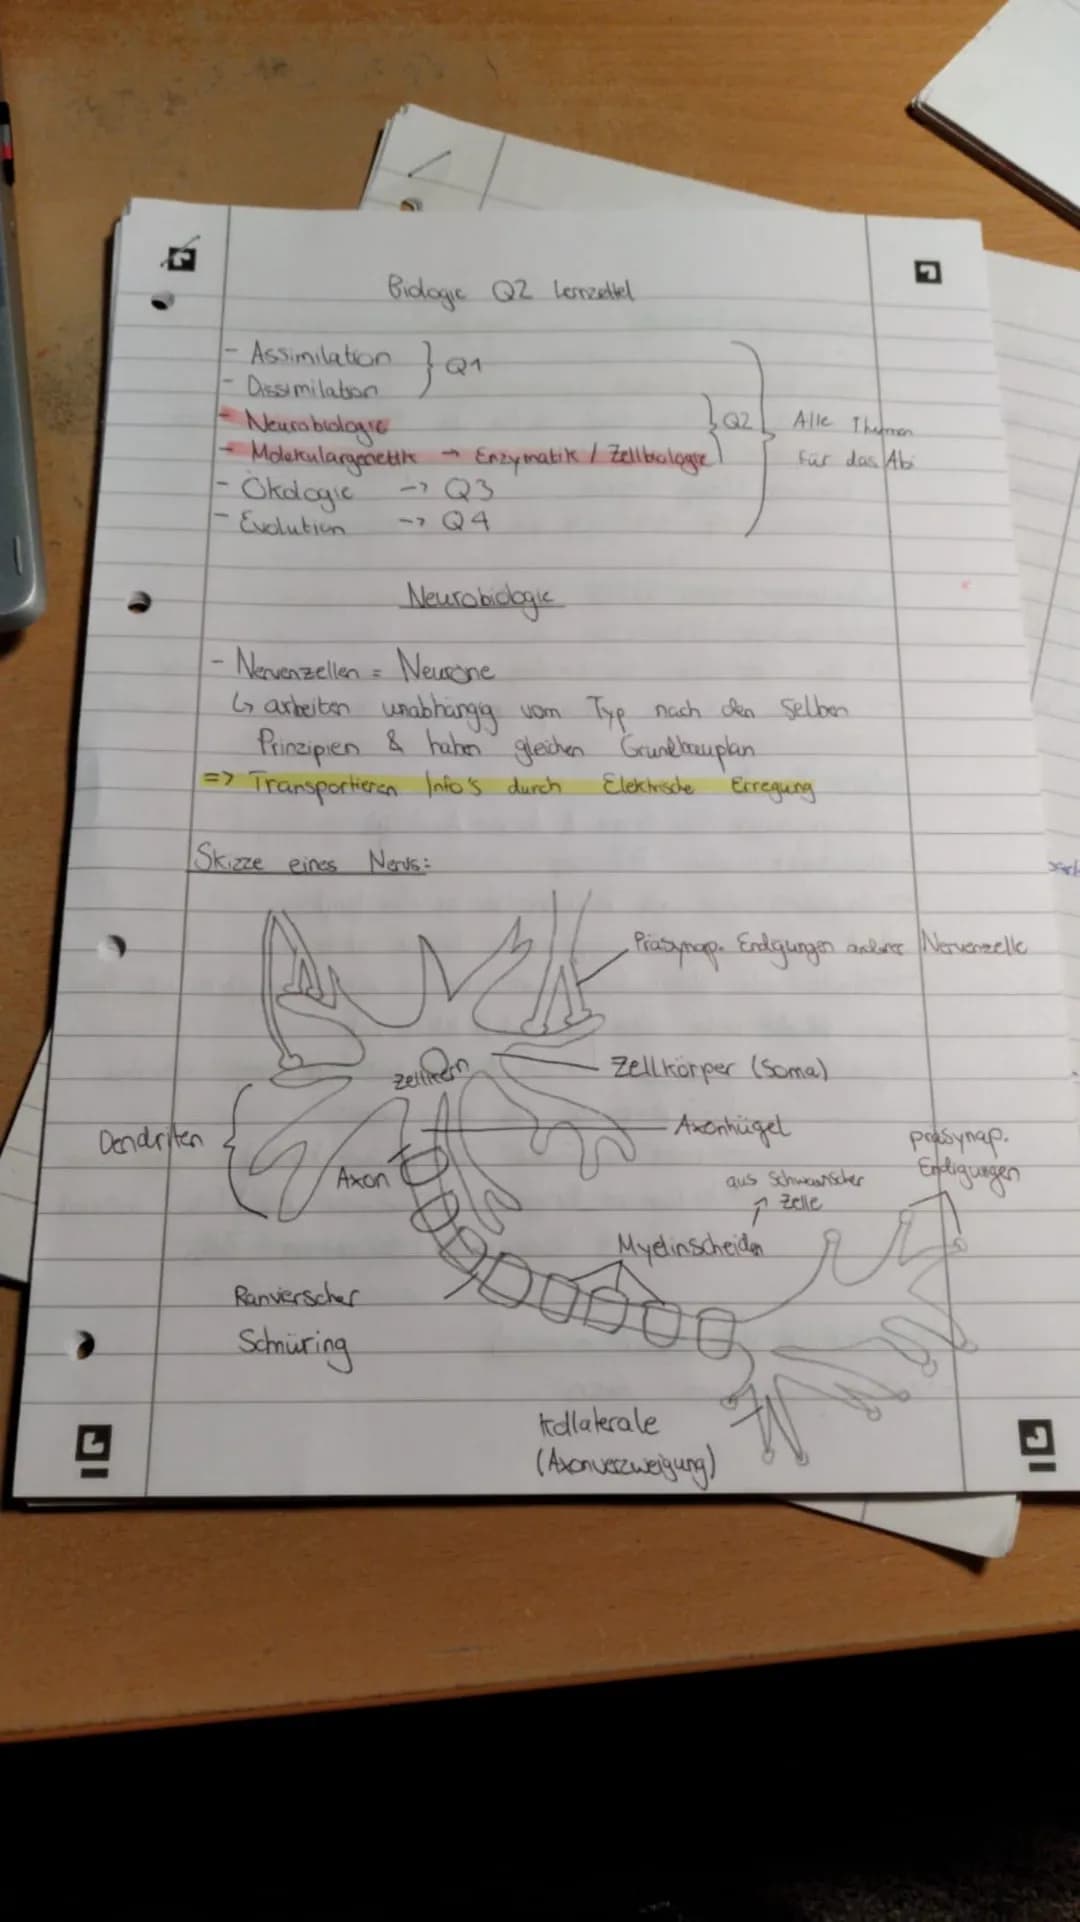 Biologie Q2 Lernzettel
- Assimilation } Q1
- Dissimilation
- Neurobiologie } Q2 } Alle Themen
- Molekulargenetik → Enzymatik / Zellbiologie für das Abi
- Ökologie -> Q3
- Evolution -> Q4
Neurobiologie
- Nervenzellen = Neurone
↳ arbeiten unabhängig vom Typ nach den selben
Prinzipien & haben gleichen Grundbauplan
=> Transportieren Info's durch Elektrische Erregung
Skizze eines Nervs:
Präsynap. Endigungen anderer Nervenzelle
Zellkern
Zellkörper (Soma)
Dendriten
Axonhügel
präsynap.
Endigungen
Axon
aus Schwannscher
Zelle
Myelinscheiden
Ranvierscher
Schnüring
Kollaterale
(Axonverzweigung)